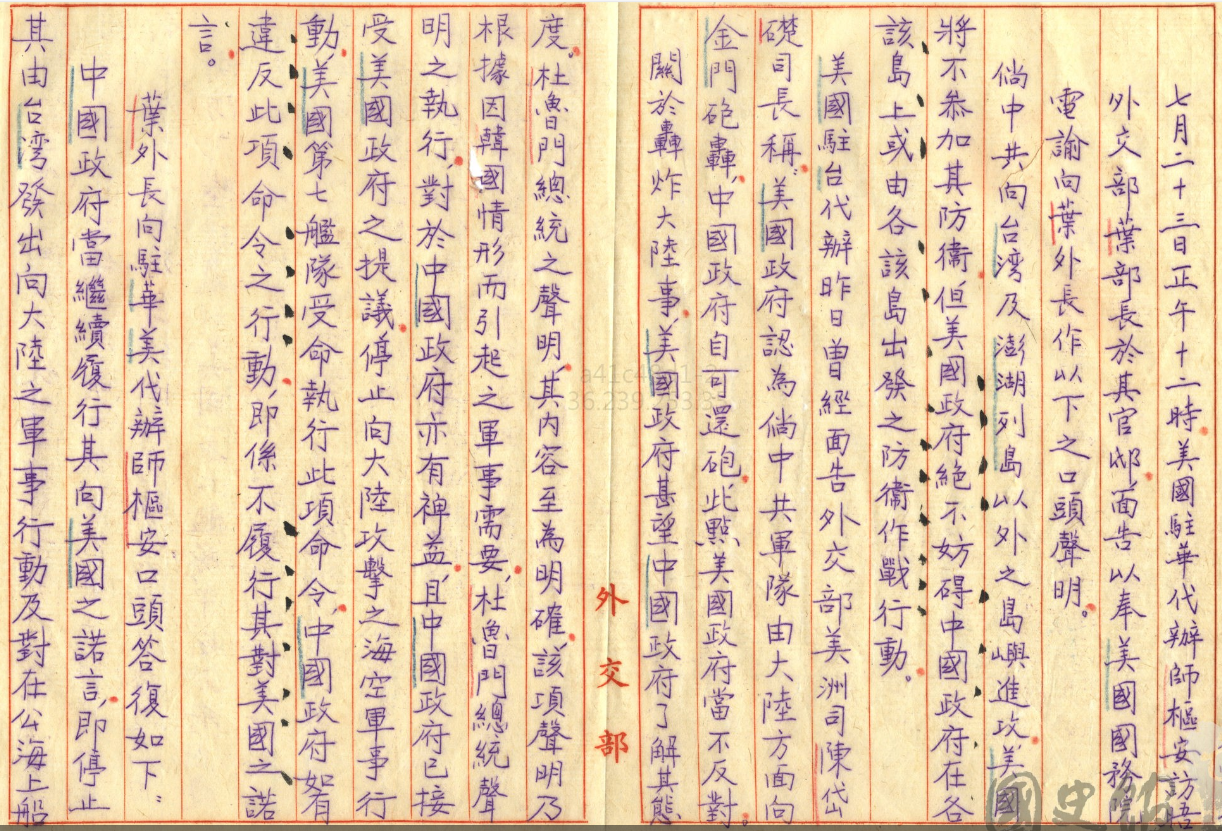 七月二十三日正午十二時美國駐華代辦師樞安訪晤
外交部葉部長於其官邸，面告以奉美國國務院
電諭向葉外長作以下之口頭聲明。
倘中共向台湾及澎湖列島以外之島嶼進攻美國
將不參加其防衞。但美國政府絕不妨碍中國政府在各
該島上或由各該島出發之防衞作戰行動。
美國駐台代辦昨日曾經面告外交部美洲司陳岱
礎司長稱：美國政府認為倘中共軍隊由大陸方面向
金門砲轟，中國政府自可還砲，此點美國政府當不反對。
關於轟炸大陸事，美國政府甚望中國政府了解其態
外交部
度。杜魯門總統之聲明，其内容至為明確，該項聲明乃
根據因韓國情形而引起之軍事需要，杜魯門總統聲
明之執行，對於中國政府亦有裨益，且中國政府已接
受美國政府之提議，停止向大陸攻擊之海空軍事行
動，美國第七艦隊受命執行此項命令，中國政府如有
違反此項命令之行動，即係不履行其對美國之諾
言。
葉外長向駐華美代辦師樞安口頭答復如下：
中國政府當繼續履行其向美國之諾言，即停止
其由台湾發出向大陸之軍事行動及對在公海上船
國史館